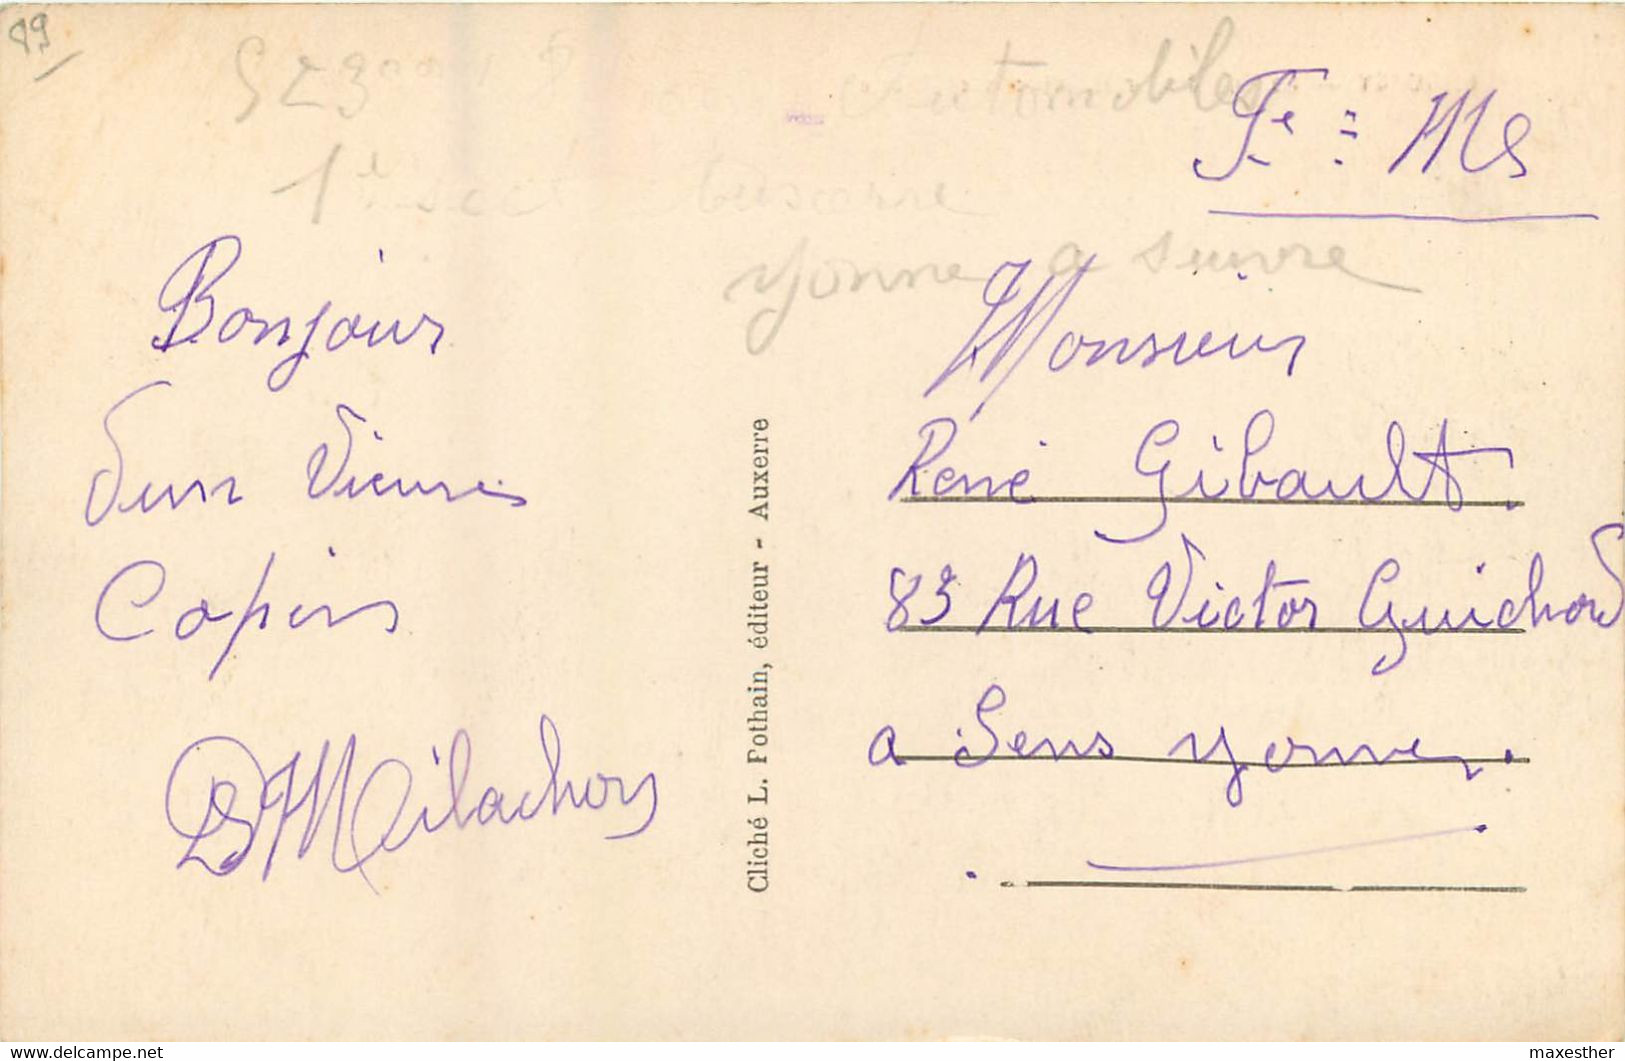 89
Automobiles
Yonne a suivre
Fe = Ms
Bonjour
d'un Vieux
Copin
Milachon
Cliché L. Pothain, éditeur - Auxerre
Monsieur
René Gibault.
83 Rue Victor Guichard
a Sens Yonne.
Delcampe.net
maxesther